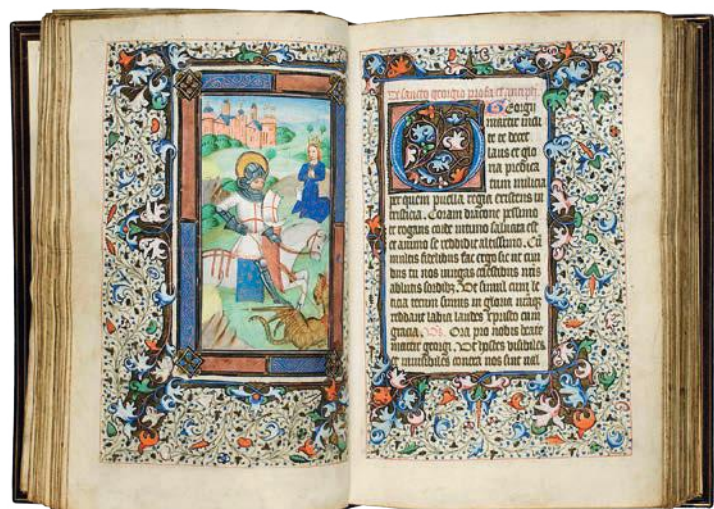 De sancto georgio prosa et antiph.
Georgii
martir incli
te te decet
laus et glo
ria predica
tum milicia
per quem puella regia existens in
tristicia. Coram dracone pessimo
te rogans corde intimo saluata est
et animo se reddidit altissimo. Cu
multis fidelibus fac ergo sic ne cum
bus tu nos iungas celestibus nris
ablutis sordibz. Vt simul cum le
ticia tecum simus in gloria
reddant labia laudes xpisto cum
gracia. Vs. Ora pro nobis beate
martir georgi. Vt hostes visibiles
et inuisibiles contra nos sint val